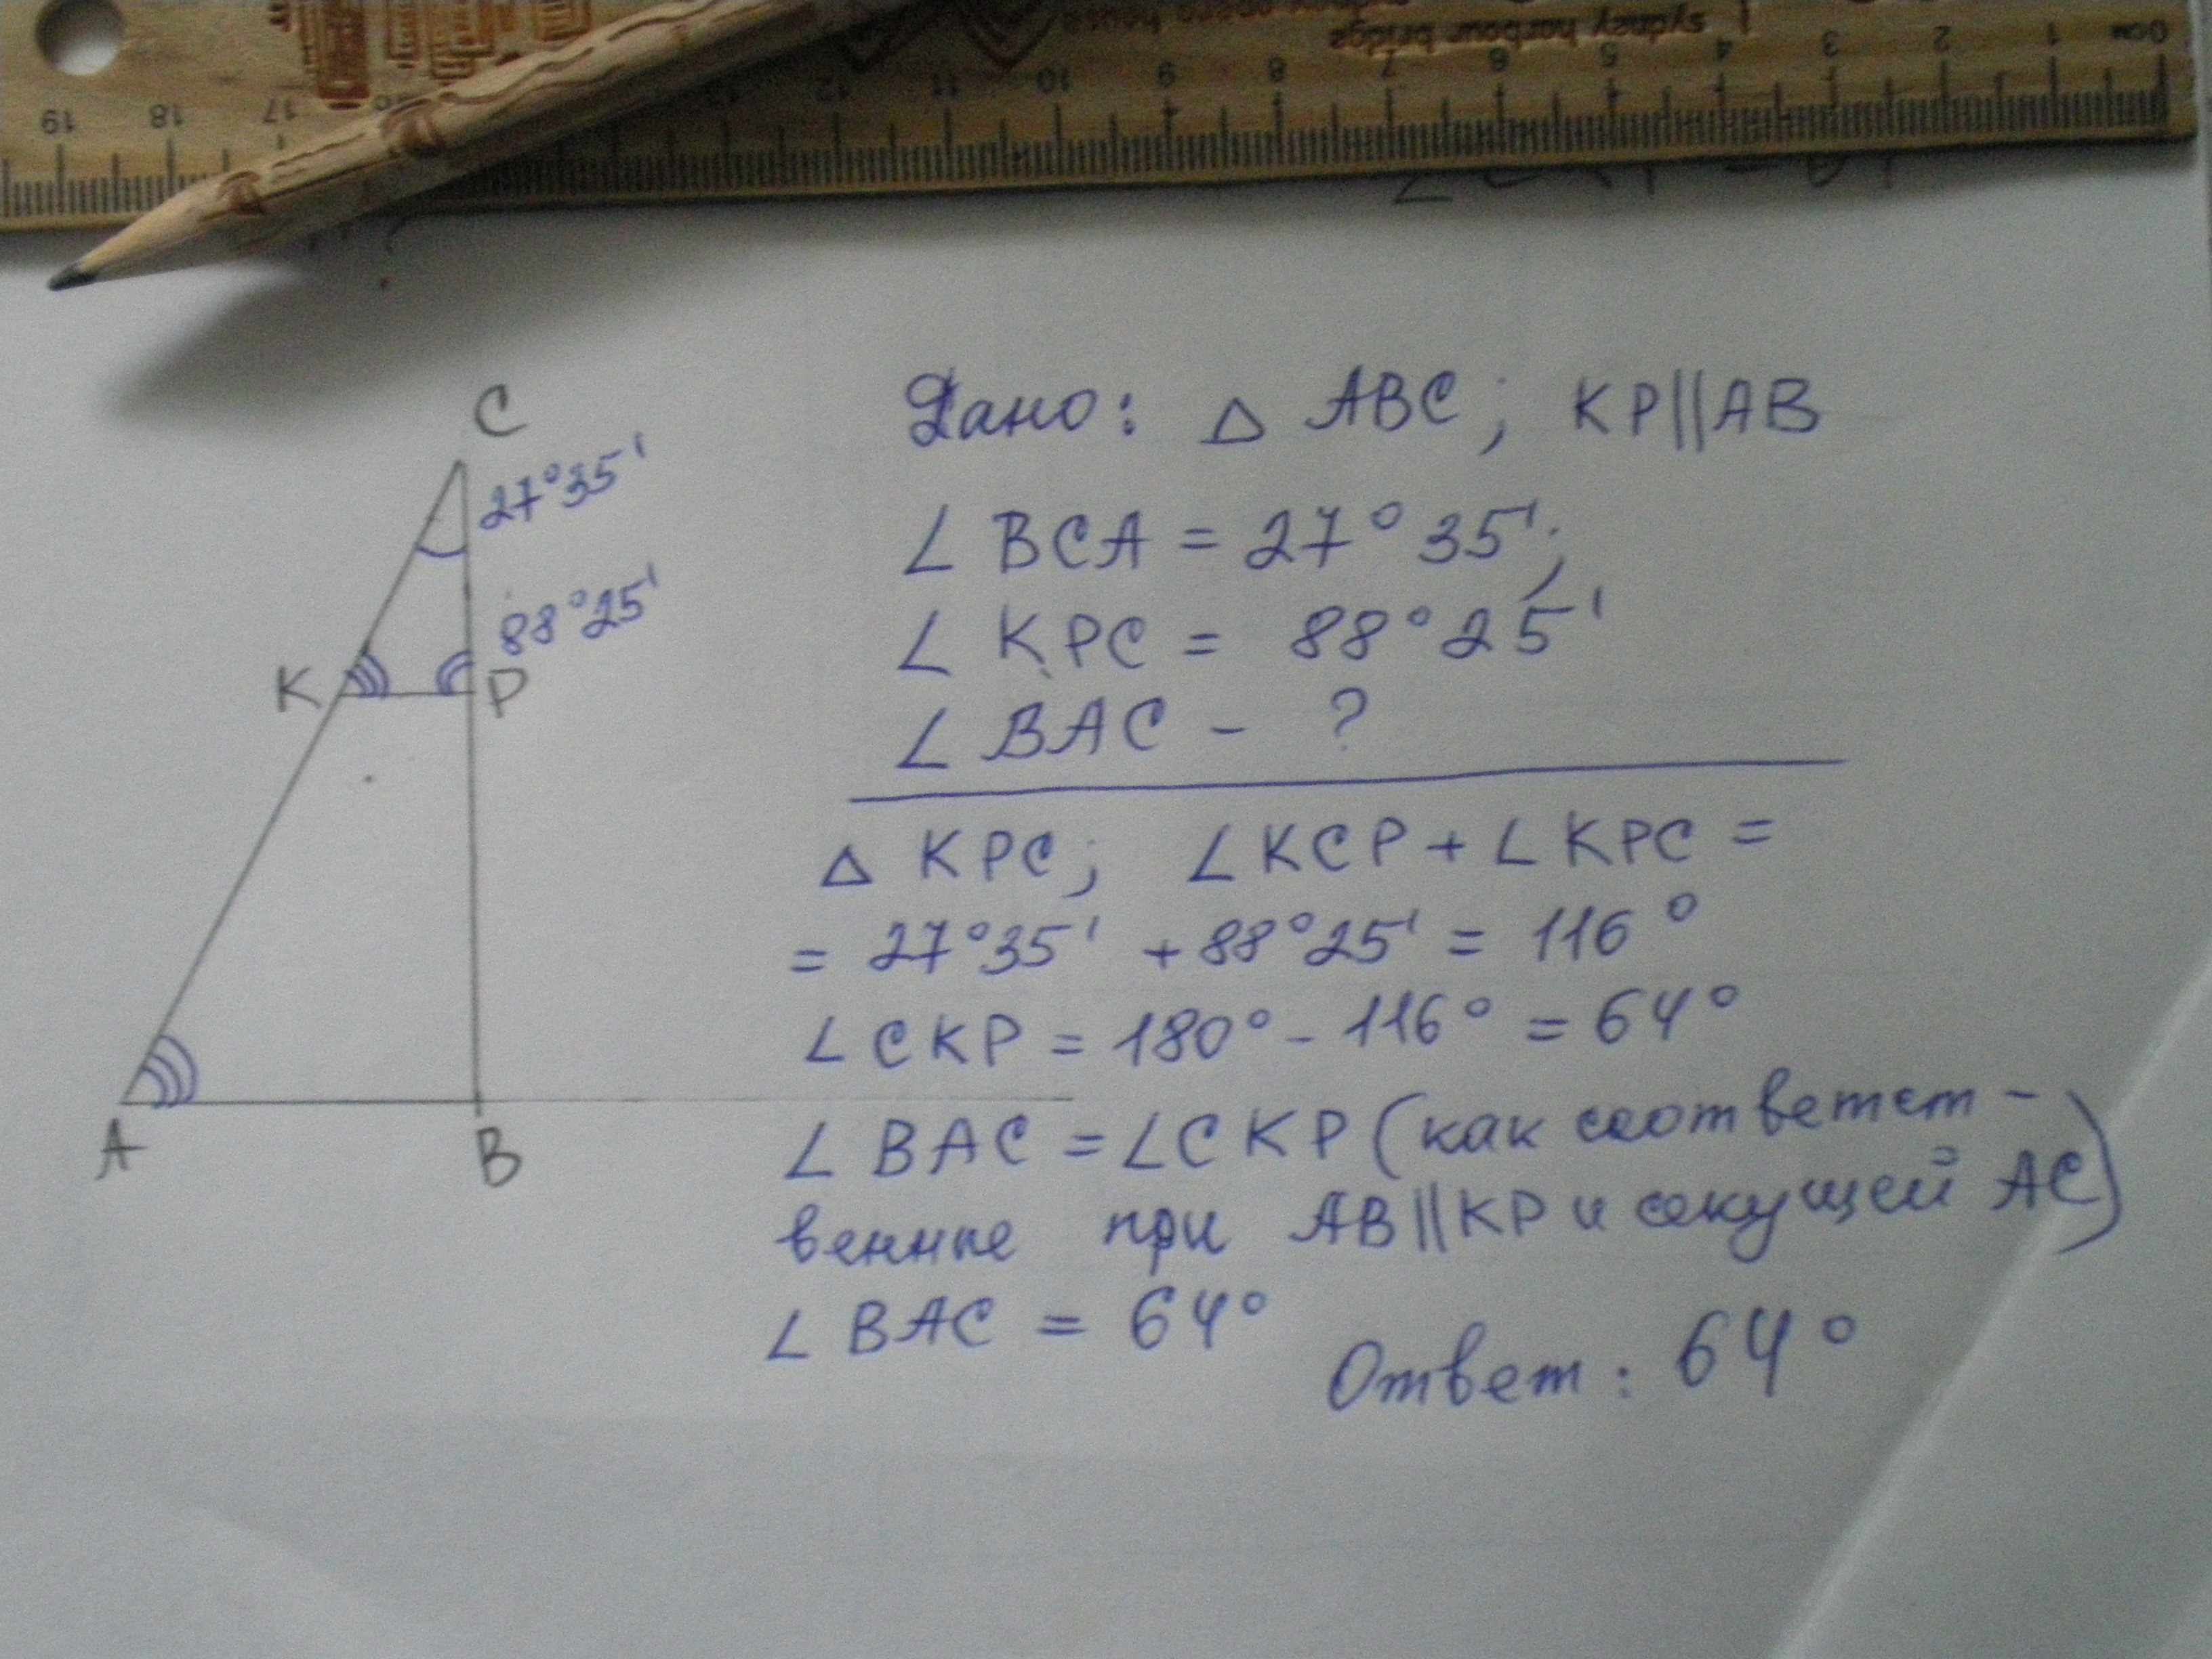 sydney harbour bridge
0см 1 2 3 4 5 6 7 8 9 10 11 12 13 17 18 19
C
27°35'
88°25'
K P
A B
Дано: △ ABC; KP||AB
∠ BCA = 27° 35';
∠ KPC = 88° 25'
∠ BAC - ?
△ KPC; ∠KCP + ∠ KPC =
= 27°35' + 88°25' = 116°
∠ CKP = 180° - 116° = 64°
∠ BAC = ∠CKP (как соответст-
венные при AB||KP и секущей AC)
∠ BAC = 64°
Ответ: 64°